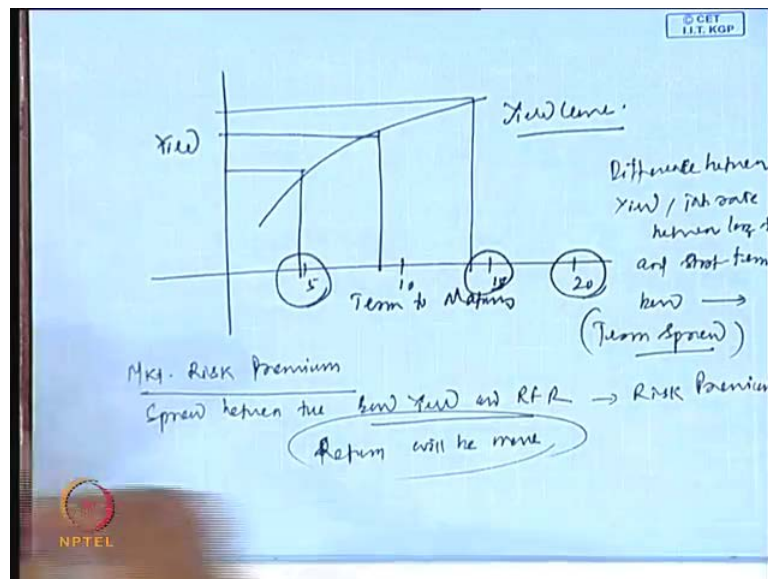 © CET
I.I.T. KGP
Yield Curve.
Yield
Difference between
Yield / int rate
between long
and short term
bond →
(Term Spread)
5 10 15 20
Term to Maturity
Mkt. Risk Premium
Spread between the bond Yield and RFR → Risk Premium
Return will be more
NPTEL